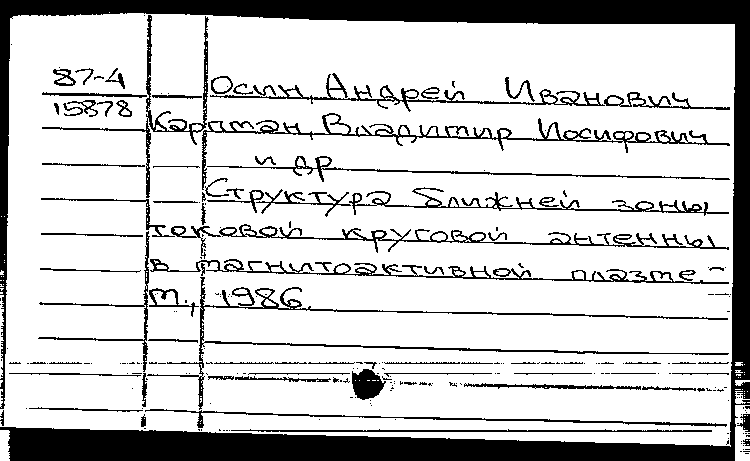 87-4
15878
Осин, Андрей Иванович
Карпман, Владимир Иосифович
и др
Структура ближней зоны
токовой круговой антенны
в магнитоактивной плазме.-
М., 1986.